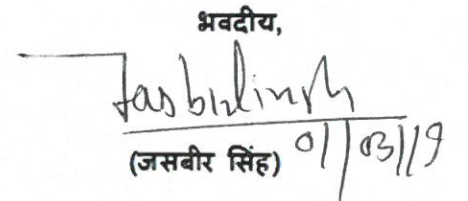 भवदीय,
Jasbir Singh
(जसबीर सिंह) 01/03/19